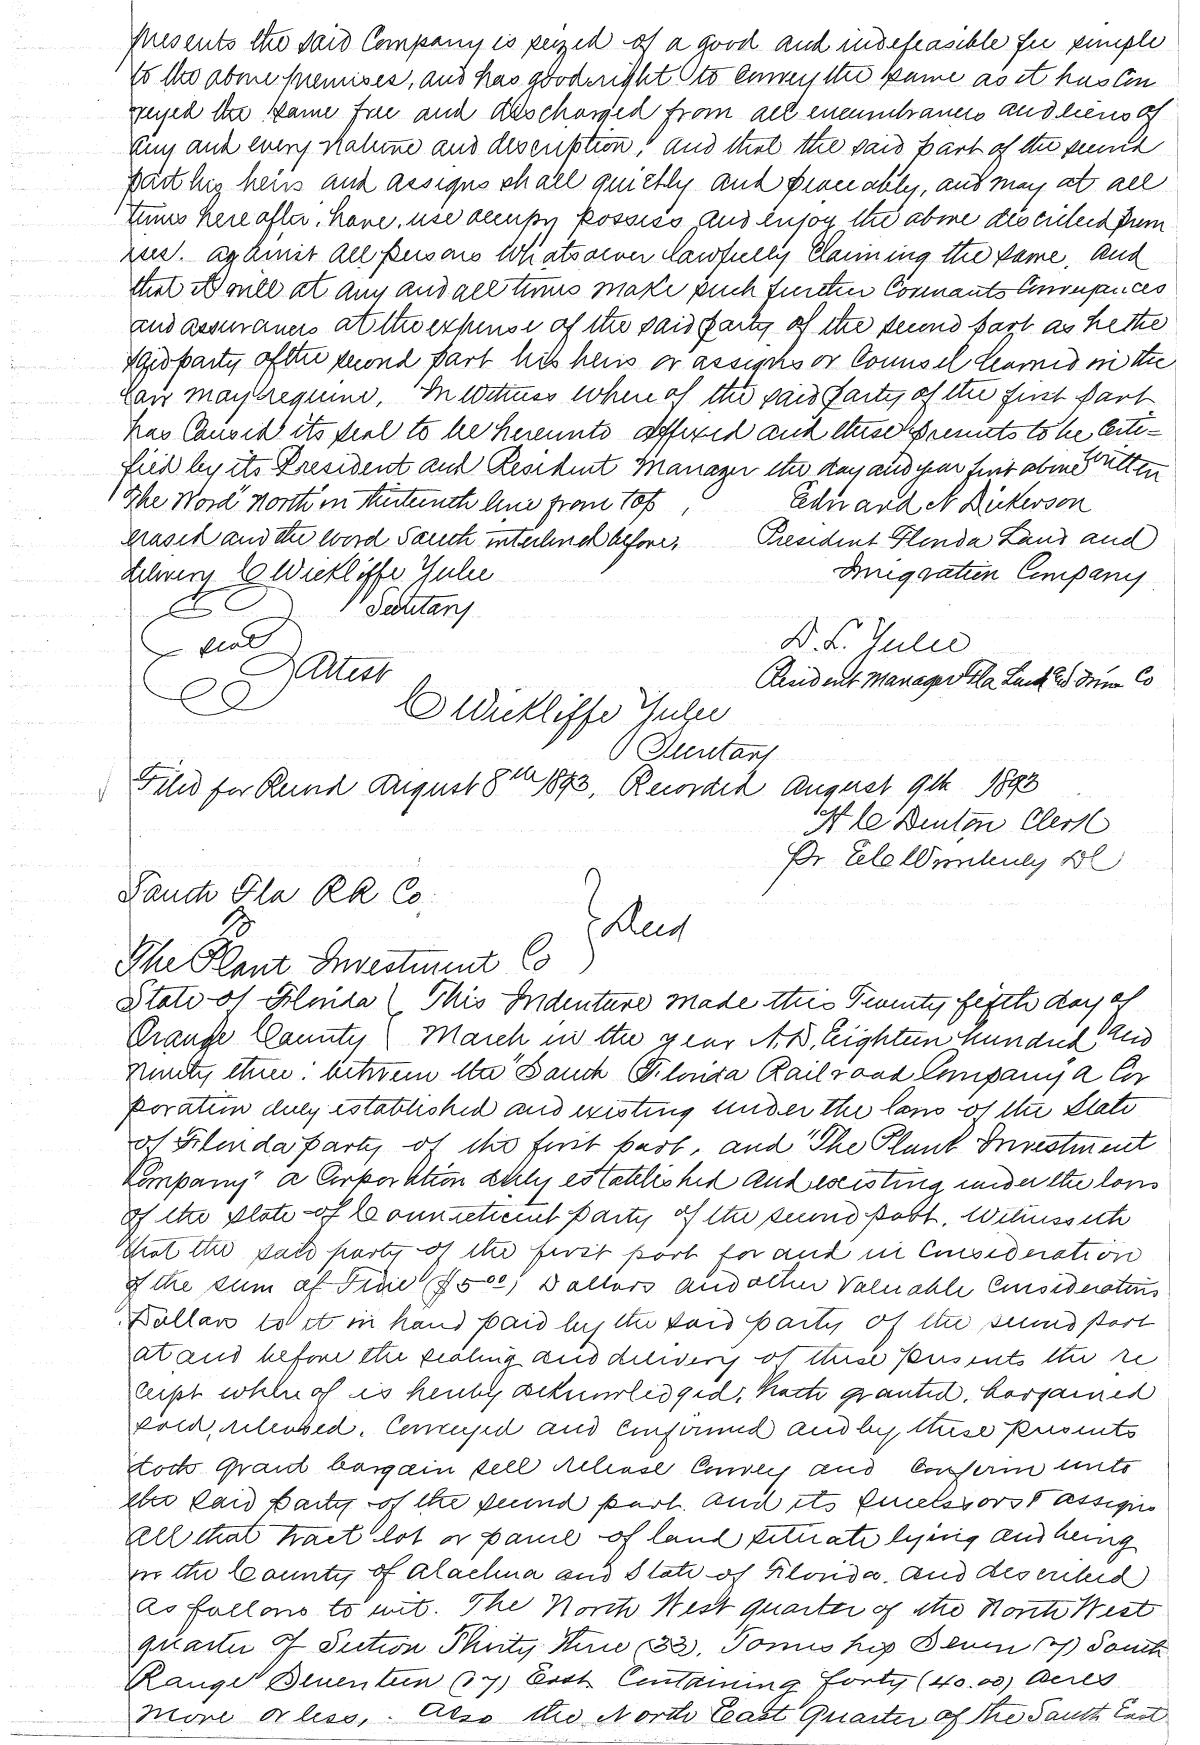 presents the said Company is seized of a good and indefeasible fee simple
to the above premises, and has good right to convey the same as it has Con
veyed the same free and discharged from all encumbrances and liens of
any and every nature and description, and that the said part of the second
part his heirs and assigns shall quietly and peaceably, and may at all
times here after, have, use occupy possess and enjoy the above discribed prem
ises. against all persons whatsoever lawfully Claiming the same, and
that it will at any and all times make such further Covenants Conveyances
and assurances at the expense of the said party of the second part as he the
said party of the second part his heirs or assigns or Counsel learned in the
law may require, In witness where of the said party of the first part
has Caused its seal to be hereunto affixed and these presents to be Certi-
fied by its President and Resident Manager the day and year first above written
The Word "North" in thirteenth line from top , Edward N Dickerson
erased and the word South interlined before, President Florida Land and
delivery C Wickliffe Yulee Imigration Company
Secretary
seal D. L. Yulee
Attest Resident Manager Fla Land Imm Co
C Wickliffe Yulee
Secretary
Filed for Record August 8th 1893, Recorded August 9th 1893
H C Denton Clerk
Pr DC
South Fla RR Co.
To } Deed
The Plant Investment Co
State of Florida ( This Indenture made this Twenty fifth day of
Orange County ( March in the year A.D. Eighteen hundred and
ninety three: between the "South Florida Railroad Company" a Cor
poration duly established and existing under the laws of the State
of Florida party of the first part, and "The Plant Investment
Company" a Corporation duly established and existing under the laws
of the State of Connecticut party of the second part. Witnesseth
that the said party of the first part for and in Consideration
of the sum of Five ($5 00) Dollars and other valuable Considerations
Dollars to it in hand paid by the said party of the second part
at and before the sealing and delivery of these presents the re
ceipt where of is hereby acknowledged; hath granted, bargained
sold, released, Conveyed and Confirmed and by these presents
doth grant bargain sell release Convey and Confirm unto
the said party of the second part and its successors & assigns
all that tract lot or parcel of land situate lying and being
in the County of Alachua and State of Florida. and described
as follows to wit. The North West quarter of the North West
quarter of Section Thirty three (33), Township Seven (7) South
Range Seventeen (17) East Containing forty (40.00) Acres
more or less, . Also the North East Quarter of the South East